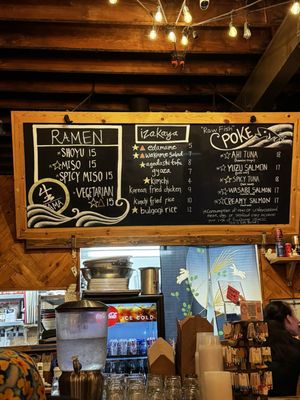 RAMEN
SHOYU 15
MISO 15
SPICY MISO 15
VEGETARIAN
15
IMA
izakaya
edamame 5
wakame salad 7
agadashi tofu 6
gyoza 7
kimchi 4
Korean fried chicken 9
Kimchi fried rice 12
bulgogi rice 12
"Raw Fish"
POKE
AHI TUNA 18
YUZU SALMON 17
SPICY TUNA 18
WASABI SALMON 17
CREAMY SALMON 17
ICE COLD